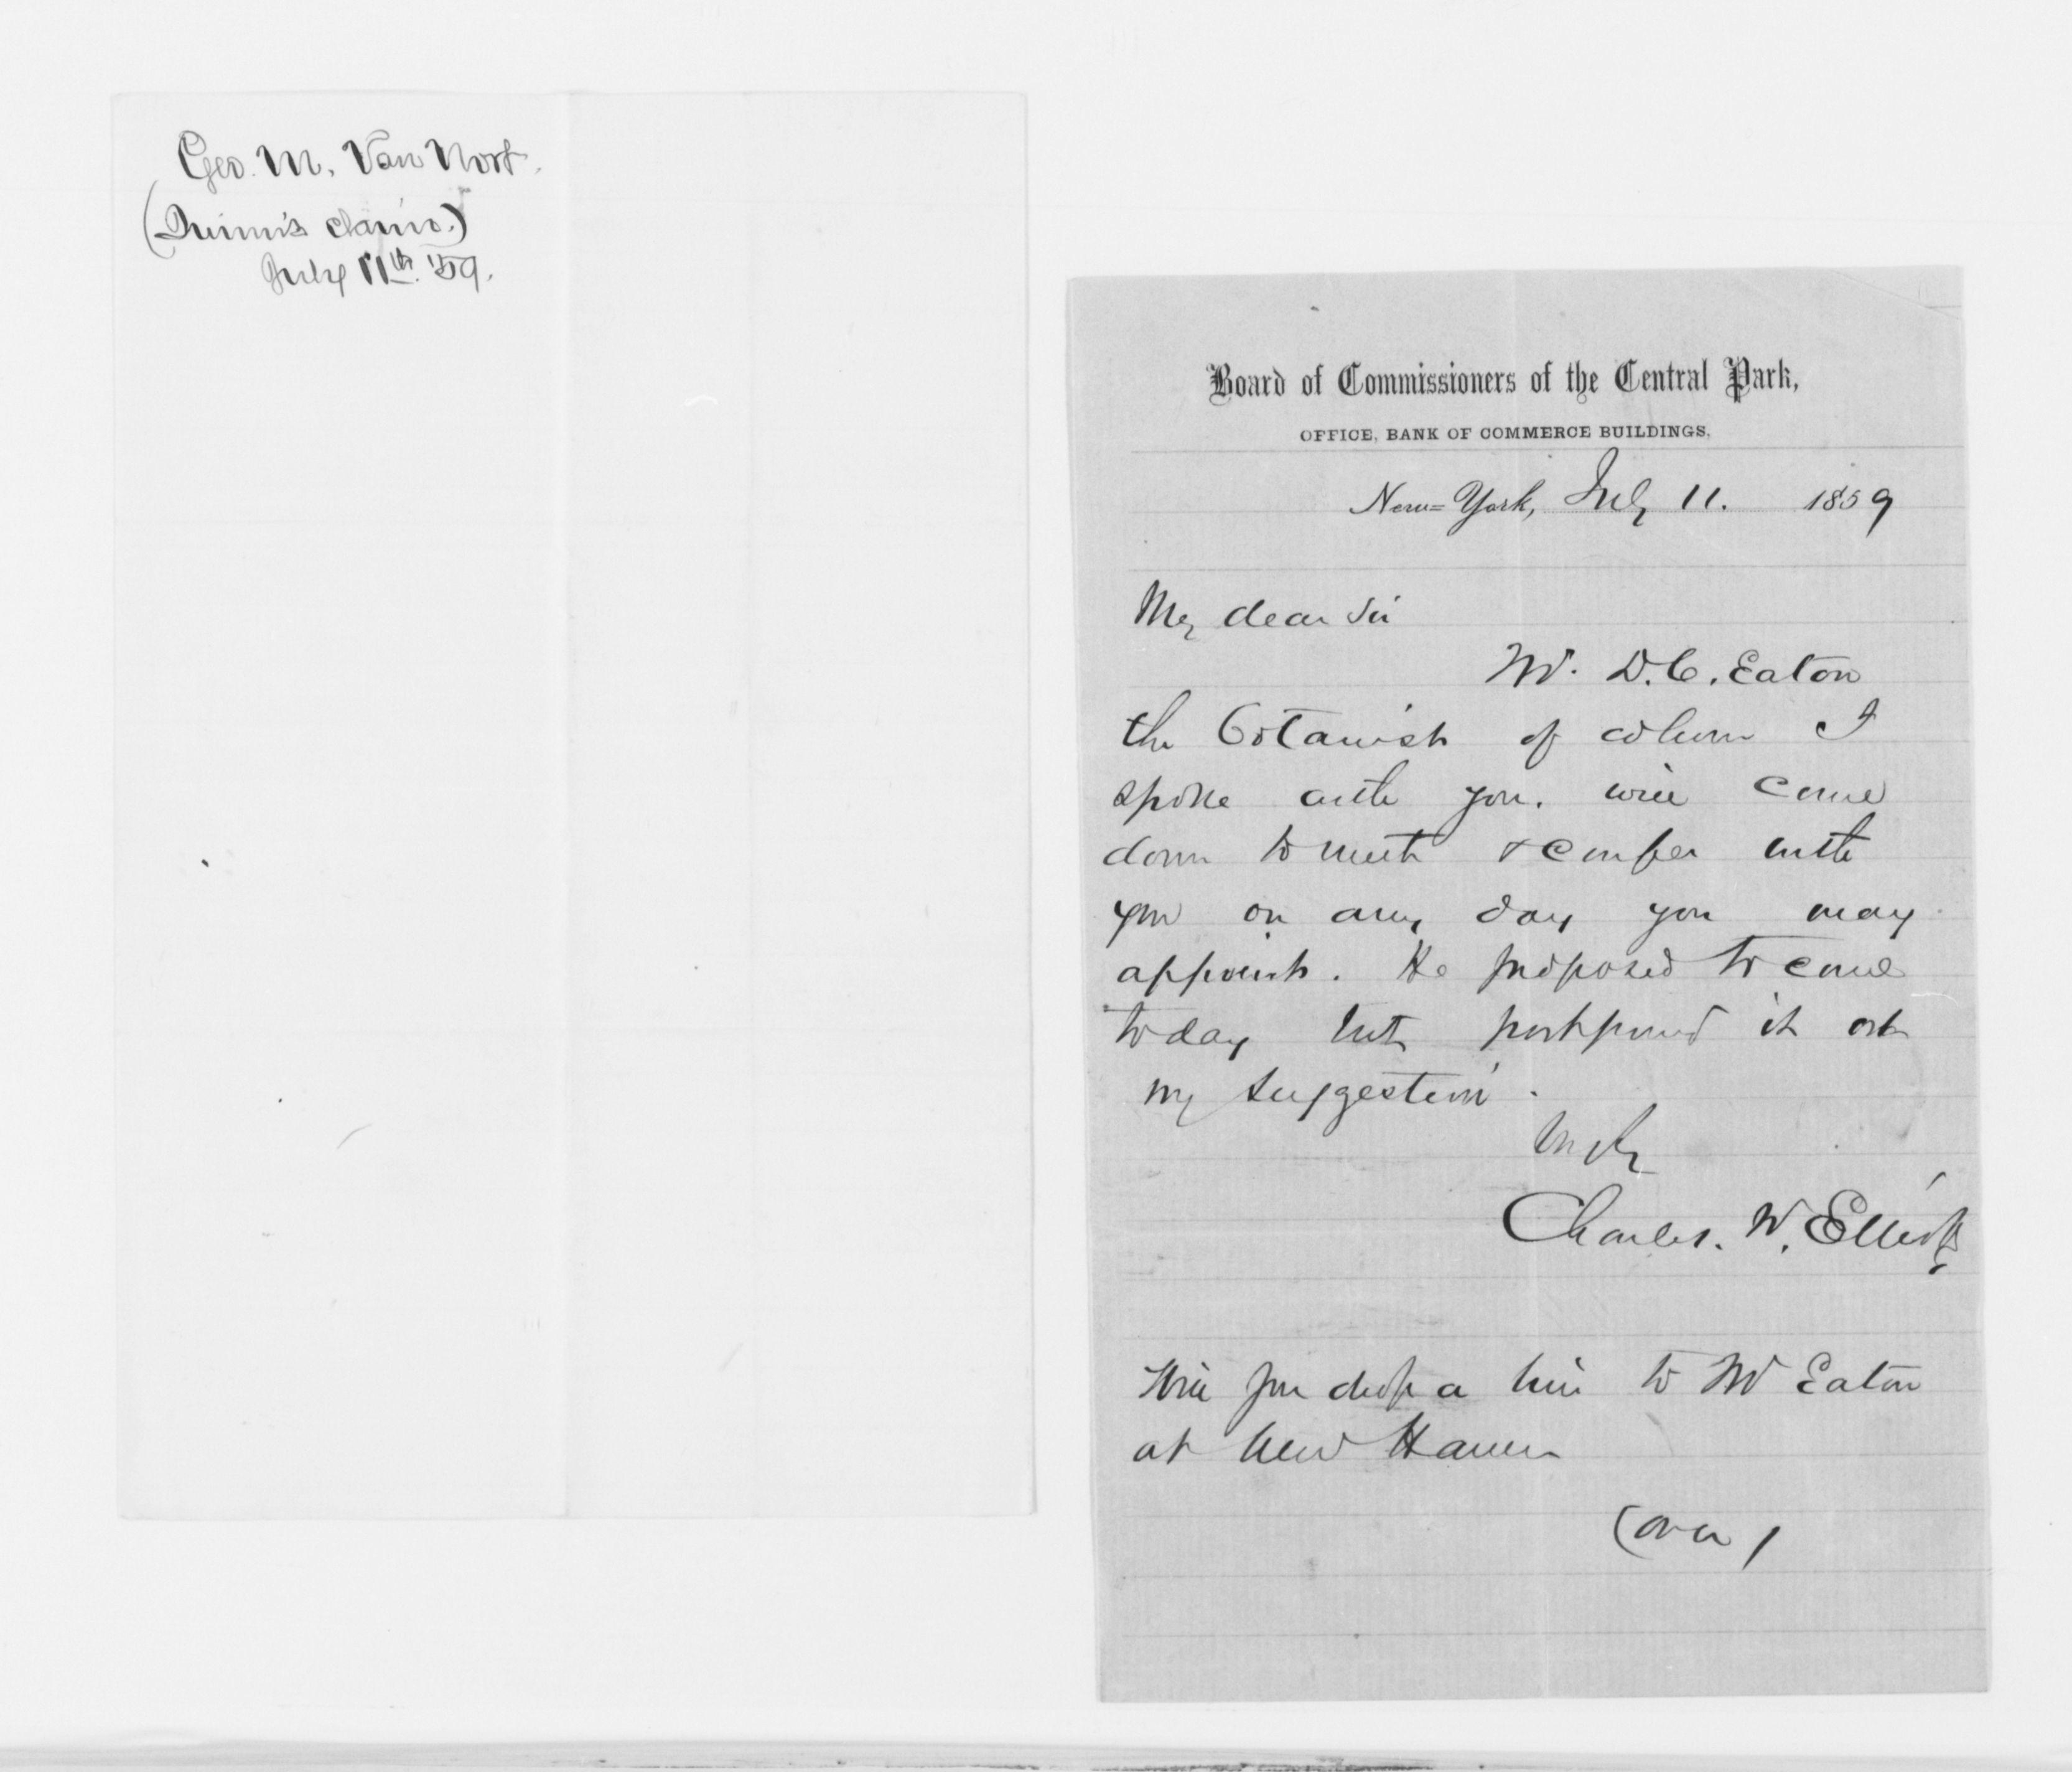 Geo. M. Van Nort.
(Quinn's claim.)
July 11th. '59.
Board of Commissioners of the Central Park,
OFFICE, BANK OF COMMERCE BUILDINGS,
New=York, July 11. 1859
My dear Sir
Mr. D.C. Eaton
the Botanist of whom I
spoke with you. will come
down to meet & confer with
you on any day you may
appoint. He proposed to come
today but postponed it at
my suggestion.
Charles. W. Elliott
Will you drop a line to Mr Eaton
at New Haven
(over)